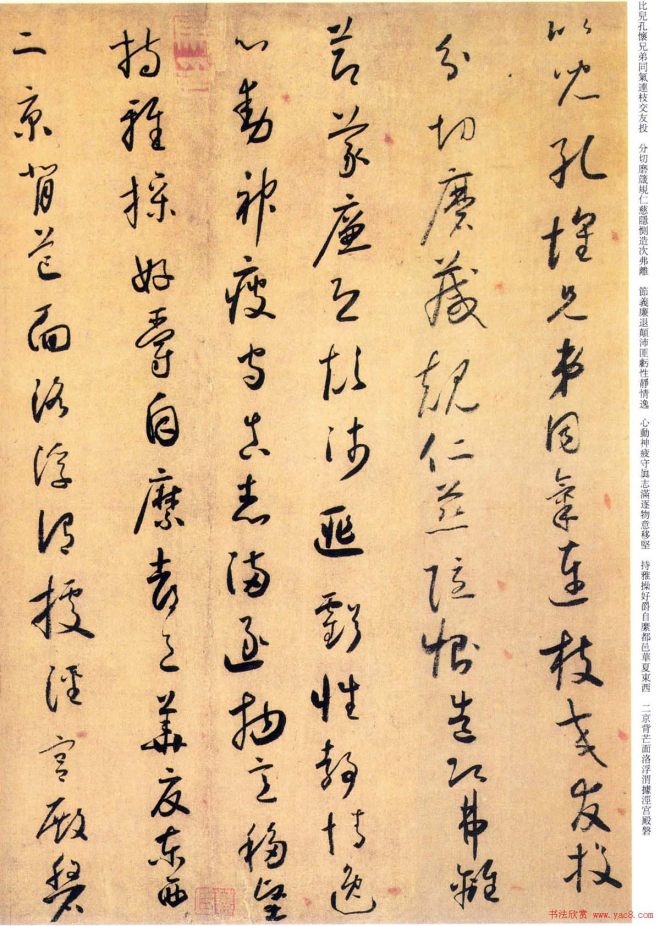 比兒孔懷兄弟同氣連枝交友投　分切磨箴規仁慈隱惻造次弗離　節義廉退顛沛匪虧性靜情逸　心動神疲守眞志滿逐物意移堅　持雅操好爵自縻都邑華夏東西　二京背芒面洛浮渭據涇宮殿磐
比兒孔懷兄弟同氣連枝交友投
分切磨箴規仁慈隱惻造次弗離
節義廉退顛沛匪虧性靜情逸
心動神疲守真志滿逐物意移堅
持雅操好爵自縻都邑華夏東西
二京背芒面洛浮渭據涇宮殿磐
书法欣赏 www.yac8.com